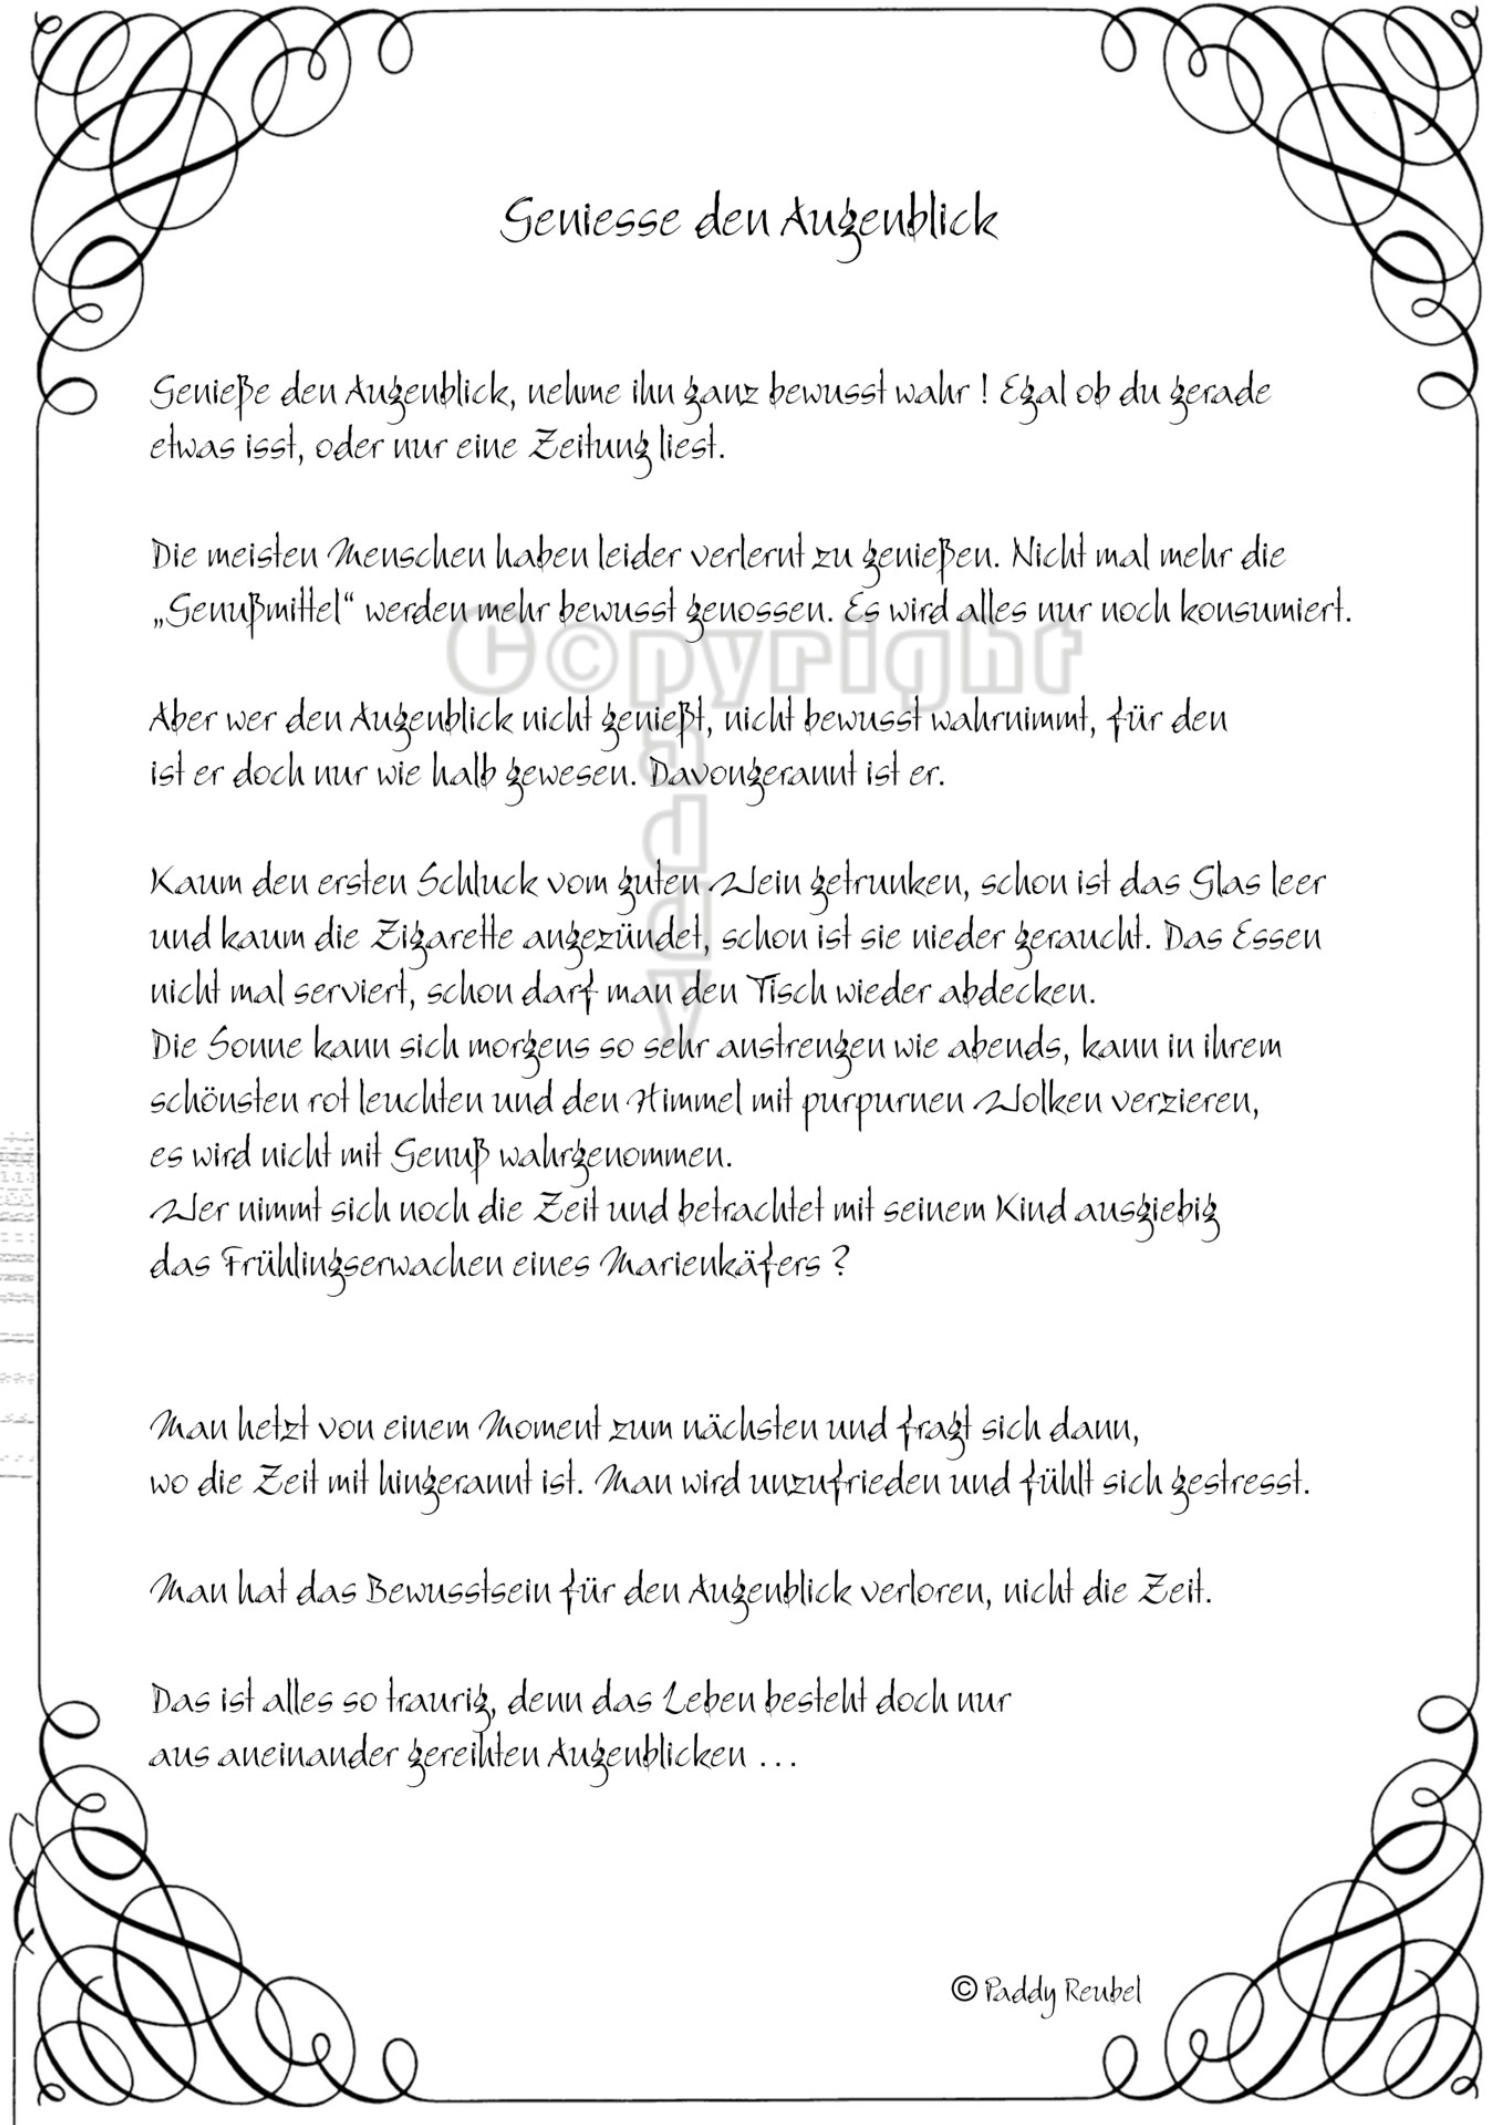 Geniesse den Augenblick
Genieße den Augenblick, nehme ihn ganz bewusst wahr ! Egal ob du gerade
etwas isst, oder nur eine Zeitung liest.
Die meisten Menschen haben leider verlernt zu genießen. Nicht mal mehr die
„Genußmittel“ werden mehr bewusst genossen. Es wird alles nur noch konsumiert.
C©pyright
Paddy
Aber wer den Augenblick nicht genießt, nicht bewusst wahrnimmt, für den
ist er doch nur wie halb gewesen. Davongerannt ist er.
Kaum den ersten Schluck vom guten Wein getrunken, schon ist das Glas leer
und kaum die Zigarette angezündet, schon ist sie nieder geraucht. Das Essen
nicht mal serviert, schon darf man den Tisch wieder abdecken.
Die Sonne kann sich morgens so sehr anstrengen wie abends, kann in ihrem
schönsten rot leuchten und den Himmel mit purpurnen Wolken verzieren,
es wird nicht mit Genuß wahrgenommen.
Wer nimmt sich noch die Zeit und betrachtet mit seinem Kind ausgiebig
das Frühlingserwachen eines Marienkäfers ?
Man hetzt von einem Moment zum nächsten und fragt sich dann,
wo die Zeit mit hingerannt ist. Man wird unzufrieden und fühlt sich gestresst.
Man hat das Bewusstsein für den Augenblick verloren, nicht die Zeit.
Das ist alles so traurig, denn das Leben besteht doch nur
aus aneinander gereihten Augenblicken ...
© Paddy Reubel